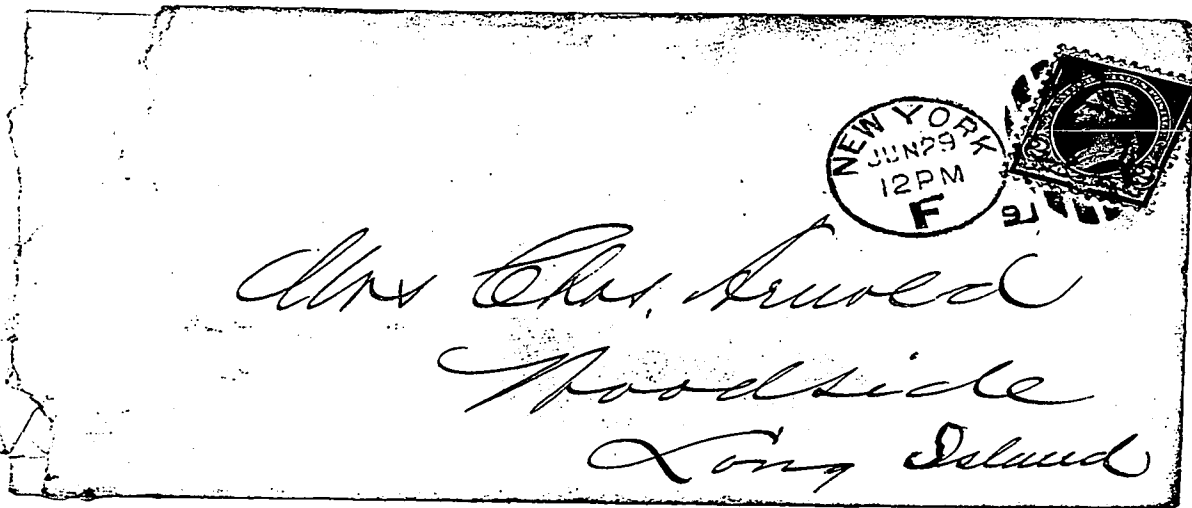 NEW YORK
JUN 29
12 PM
F
91
Mrs Chas. Arnold
Woodside
Long Island